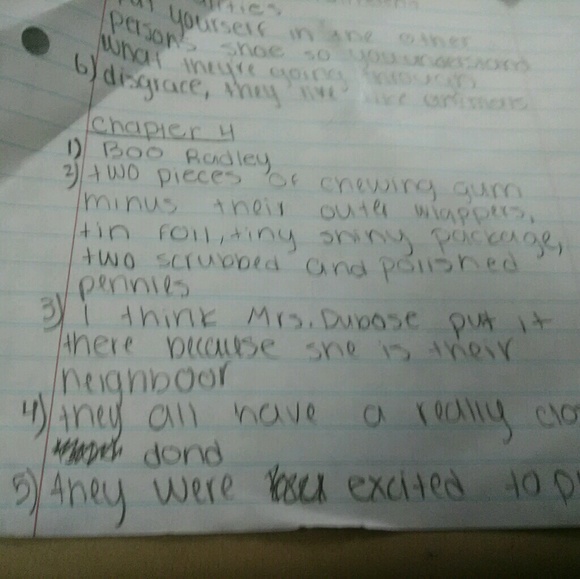 yourself in the other
person's shoe so you understand
what they're going through
6) disgrace, they live like animals
Chapter 4
1) Boo Radley
2) two pieces of chewing gum
minus their outer wrappers,
tin foil, tiny shiny package,
two scrubbed and polished
pennies
3) I think Mrs. Dubose put it
there because she is their
neighboor
4) they all have a really clo
dond
5) they were excited to p